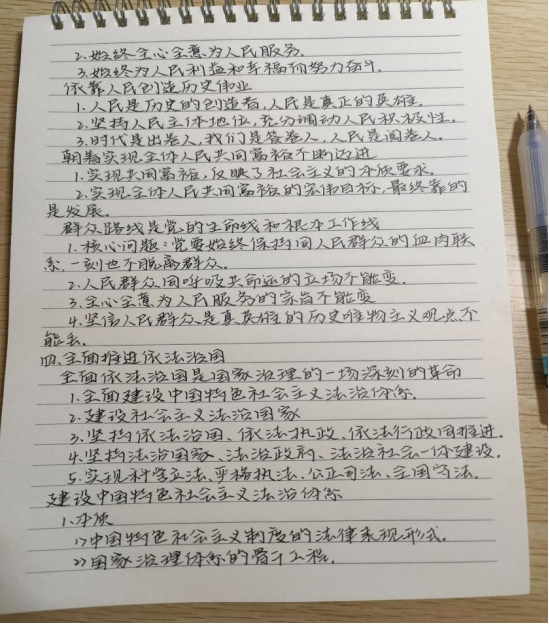 2.始终全心全意为人民服务.
3.始终为人民利益和幸福而努力奋斗.
依靠人民创造历史伟业
1.人民是历史的创造者,人民是真正的英雄.
2.坚持人民主体地位,充分调动人民积极性.
3.时代是出卷人,我们是答卷人,人民是阅卷人.
朝着实现全体人民共同富裕不断迈进
1.实现共同富裕,反映了社会主义的本质要求.
2.实现全体人民共同富裕的宏伟目标,最终靠的
是发展.
群众路线是党的生命线和根本工作线
1.核心问题:党要始终保持同人民群众的血肉联
系,一刻也不脱离群众.
2.人民群众同呼吸共命运的立场不能变.
3.全心全意为人民服务的宗旨不能变
4.坚信人民群众是真英雄的历史唯物主义观点不
能丢.
四.全面推进依法治国
全面依法治国是国家治理的一场深刻的革命
1.全面建设中国特色社会主义法治体系.
2.建设社会主义法治国家
3.坚持依法治国、依法执政、依法行政同推进.
4.坚持法治国家、法治政府、法治社会一体建设.
5.实现科学立法、严格执法、公正司法、全国守法.
建设中国特色社会主义法治体系
1.本质
1)中国特色社会主义制度的法律表现形式.
2)国家治理体系的骨干工程.